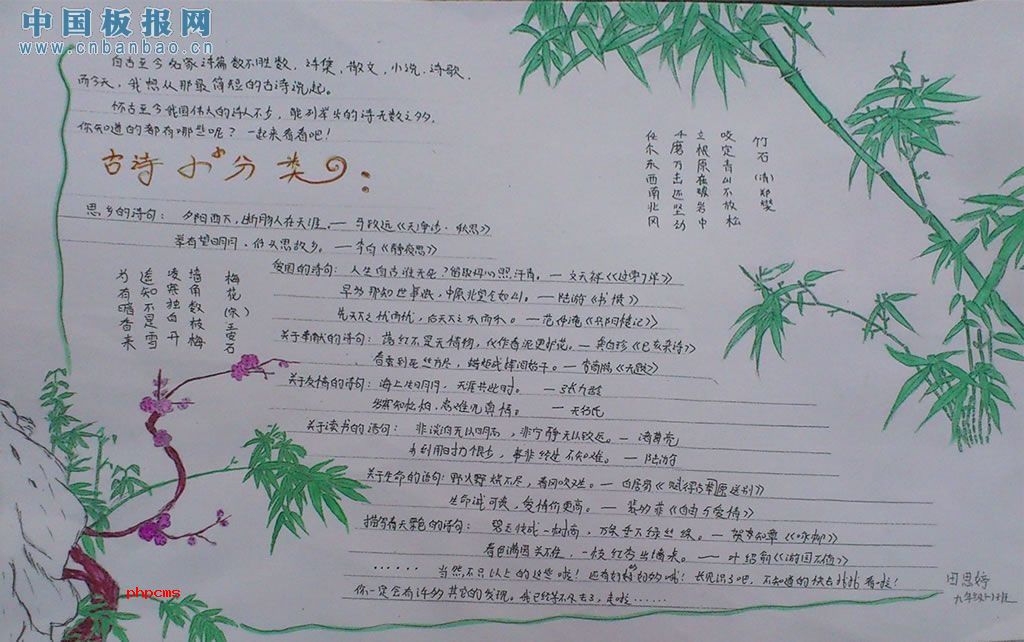 中国板报网
www.cnbanbao.cn
自古至今名家诗篇数不胜数，诗集，散文，小说，诗歌，
而今天，我想从那最简短的古诗说起。
怀古至今我国伟大的诗人不少，能列举出的诗无数之多，
你知道的都有哪些呢？一起来看看吧！
古诗小分类：
竹石(清)郑燮
咬定青山不放松
立根原在破岩中
千磨万击还坚劲
任尔东西南北风
思乡的诗句：夕阳西下，断肠人在天涯。—马致远《天净沙·秋思》
举头望明月，低头思故乡。—李白《静夜思》
梅花(宋)王安石
墙角数枝梅
凌寒独自开
遥知不是雪
为有暗香来
爱国的诗句：人生自古谁无死？留取丹心照汗青。—文天祥《过零丁洋》
早岁那知世事艰，中原北望气如山。—陆游《书愤》
先天下之忧而忧，后天下之乐而乐。—范仲淹《岳阳楼记》
关于奉献的诗句：落红不是无情物，化作春泥更护花。—龚自珍《己亥杂诗》
春蚕到死丝方尽，蜡炬成灰泪始干。—李商隐《无题》
关于友情的诗句：海上生明月，天涯共此时。—张九龄
岁寒知松柏，患难见真情。
关于读书的诗句：非淡泊无以明志，非宁静无以致远。—诸葛亮
书到用时方恨少，事非经过不知难。—陆游
关于生命的诗句：野火烧不尽，春风吹又生。—白居易《赋得古草原送别》
生命诚可贵，爱情价更高。—裴多菲《自由与爱情》
描写春天景色的诗句：碧玉妆成一树高，万条垂下绿丝绦。—贺知章《咏柳》
春色满园关不住，一枝红杏出墙来。—叶绍翁《游园不值》
······当然不只以上的这些啦！还有好多好多的哦！长见识了吧，不知道的快去找找看啦！
你一定会有许多其它的发现。我已经等不及去了，走啦······
田思婷
phpcms